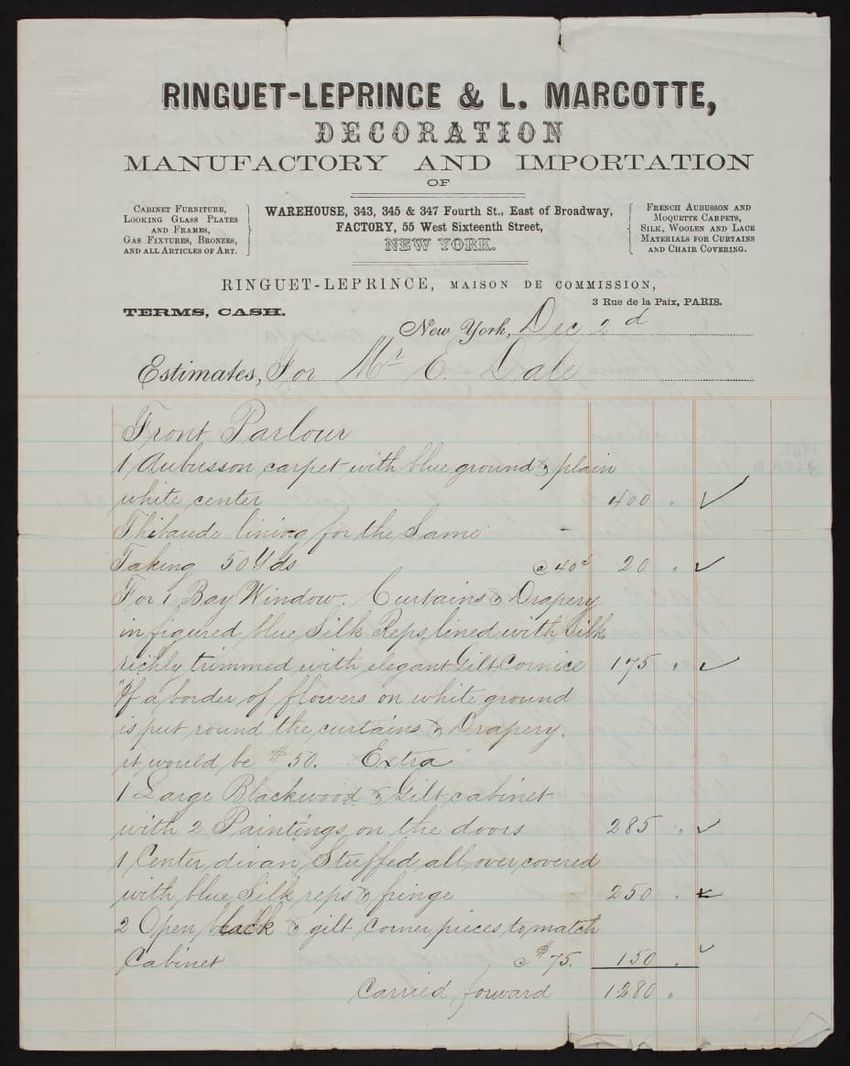 RINGUET-LEPRINCE & L. MARCOTTE,
DECORATION
MANUFACTORY AND IMPORTATION
OF
CABINET FURNITURE,
LOOKING GLASS PLATES
AND FRAMES,
GAS FIXTURES, BRONZES,
AND ALL ARTICLES OF ART.
WAREHOUSE, 343, 345 & 347 Fourth St., East of Broadway,
FACTORY, 55 West Sixteenth Street,
NEW YORK.
FRENCH AUBUSSON AND
MOQUETTE CARPETS,
SILK, WOOLEN AND LACE
MATERIALS FOR CURTAINS
AND CHAIR COVERING.
RINGUET-LEPRINCE, MAISON DE COMMISSION,
3 Rue de la Paix, PARIS.
TERMS, CASH.
New York, Dec 2d
Estimates, For Mr E. Dale
Front Parlour
1 Aubusson carpet with blue ground & plain
white center 400.
Thibaude lining for the Same
Taking 50 Yds @ 40c 20.
For 1 Bay Window. Curtains & Drapery
in figured blue Silk Reps, lined with Silk
richly trimmed with elegant Gilt Cornice 175.
"If a border of flowers on white ground
is put round the curtains & Drapery.
it would be $50. Extra
1 Large Blackwood & Gilt cabinet
with 2 Paintings on the doors 285.
1 Center divan, Stuffed all over, covered
with blue Silk reps & fringe 250.
2 Open black & gilt corner pieces to match
Cabinet @ $75. 150.
Carried forward 1280.